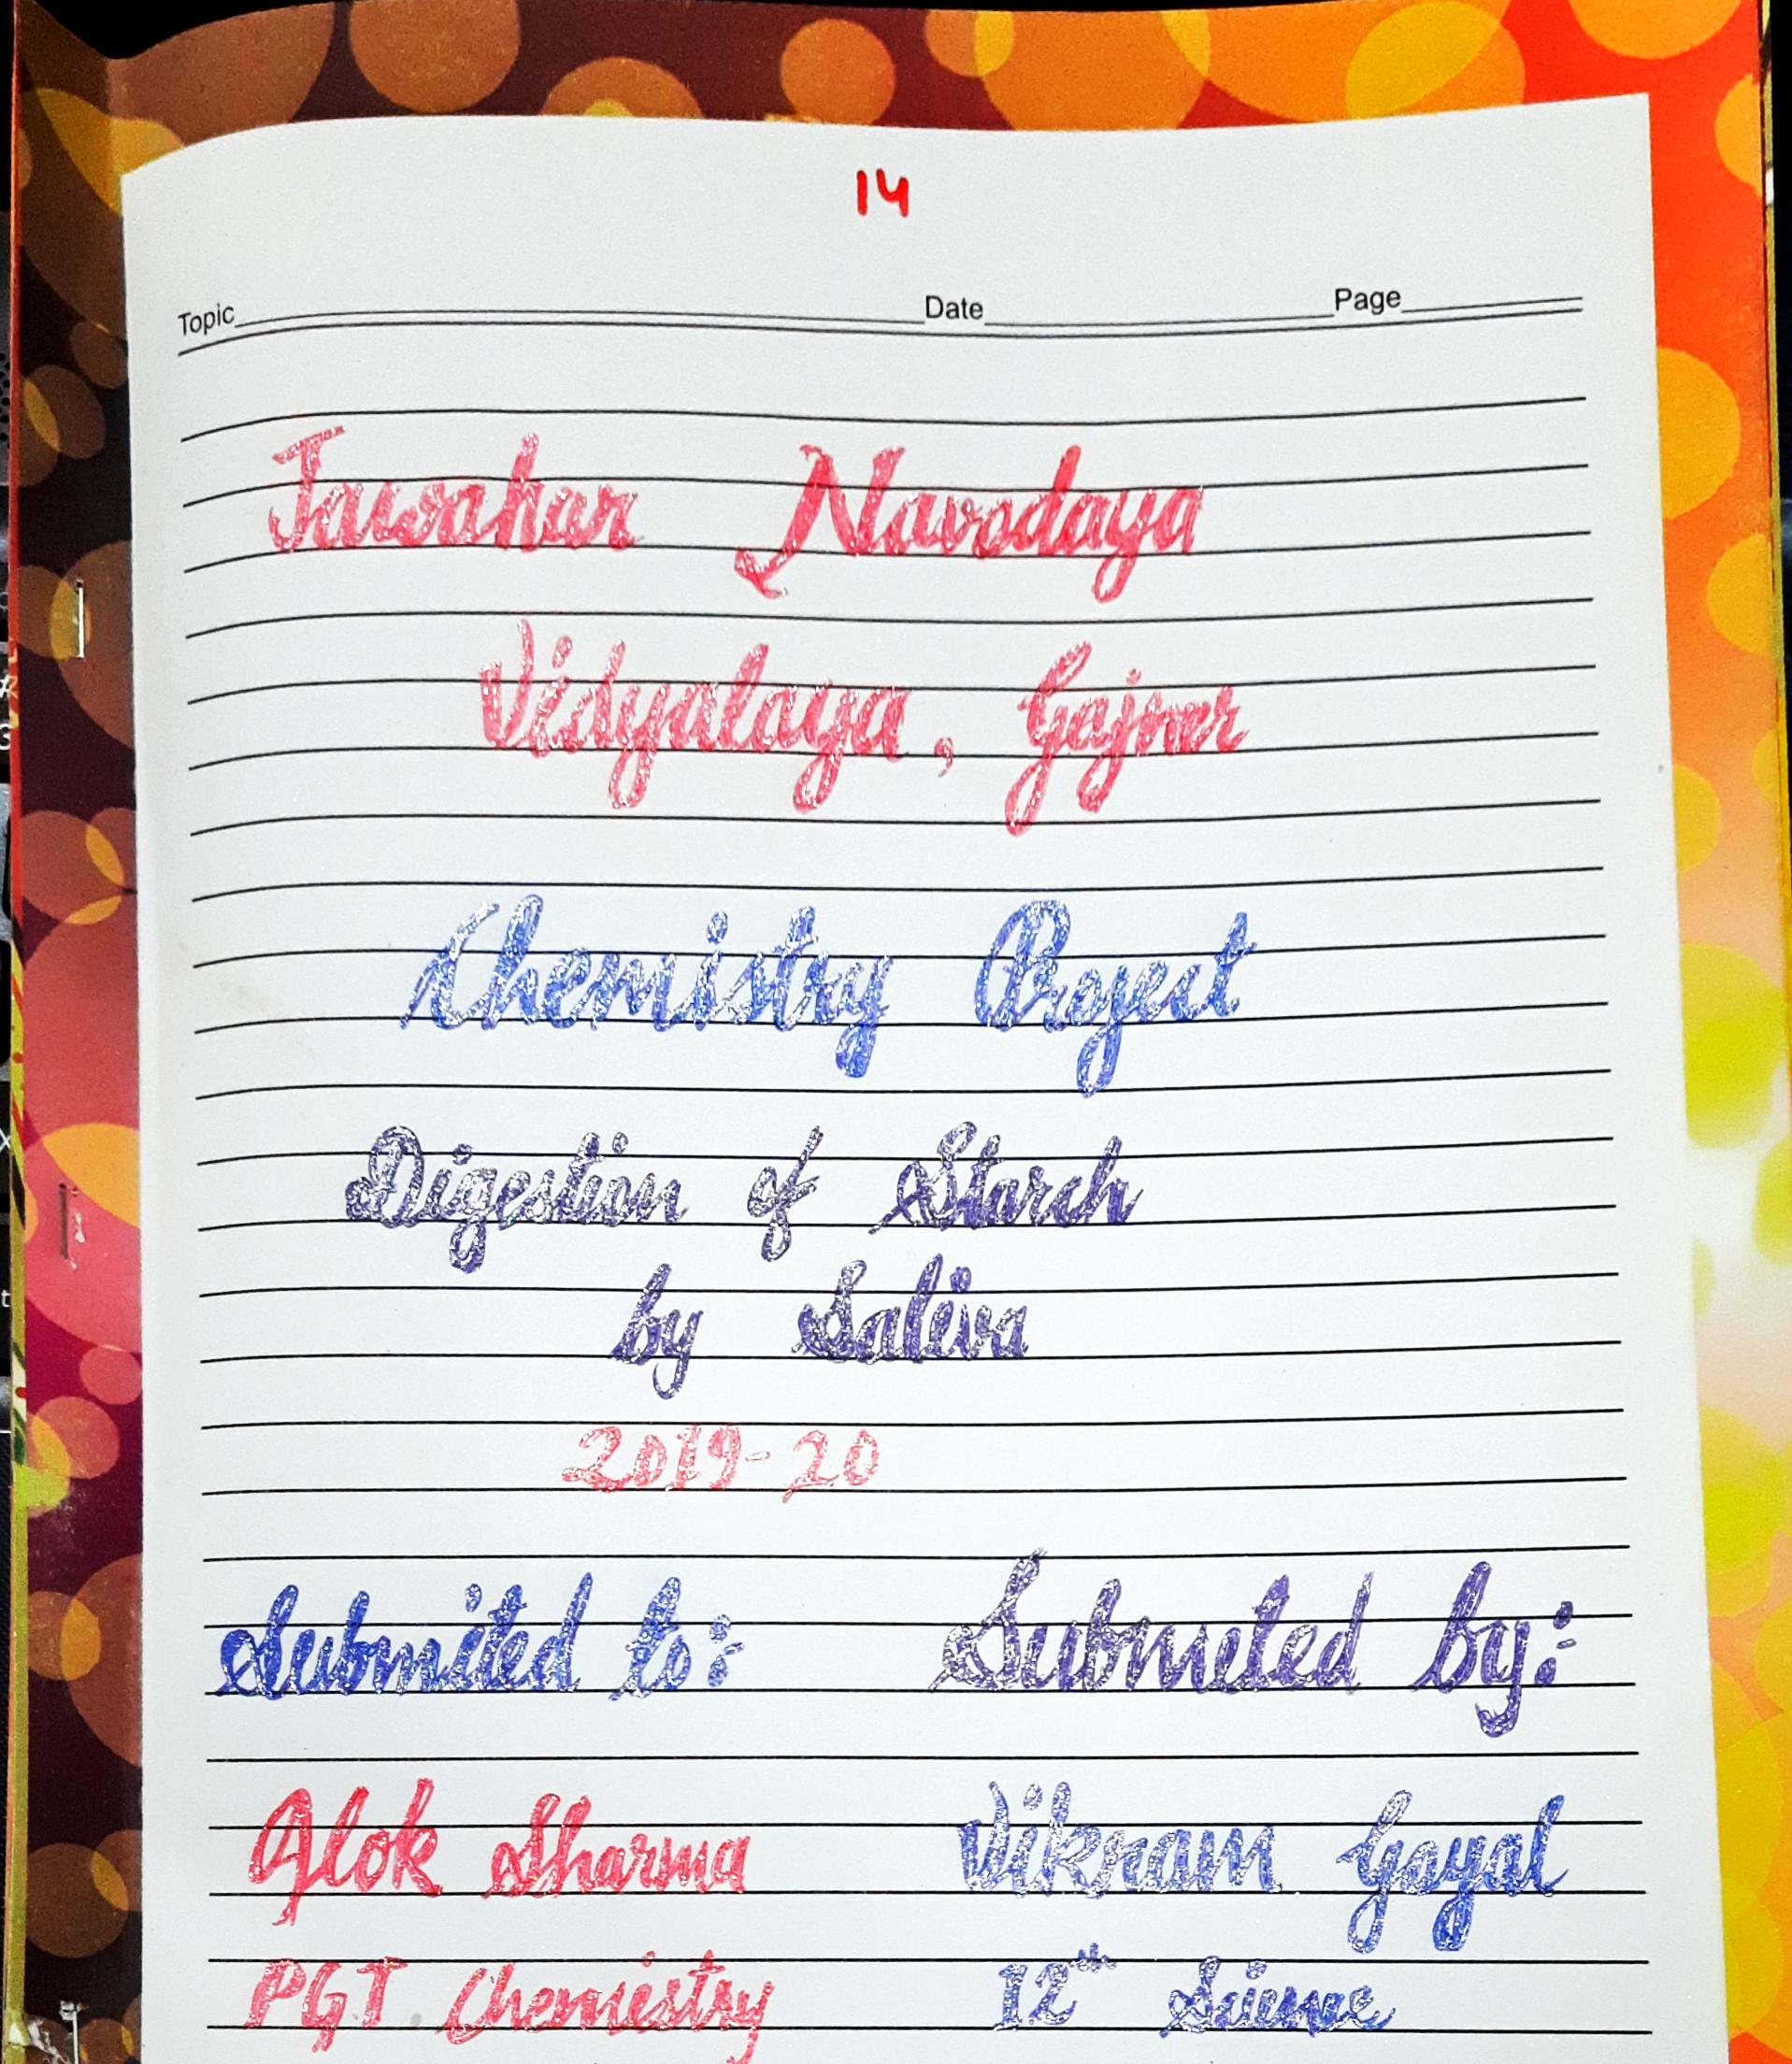 14
Topic Date Page
Jawahar Navodaya
Vidyalaya, Gajner
Chemistry Project
Digestion of Starch
by Saliva
2019-20
Submited to:- Submited by:-
Alok Sharma Vikram Goyal
PGT Chemistry 12th Science